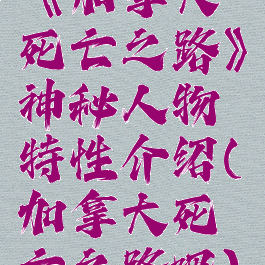 《加拿大
死亡之路》
神秘人物
特性介绍(
加拿大死
亡之路娜)